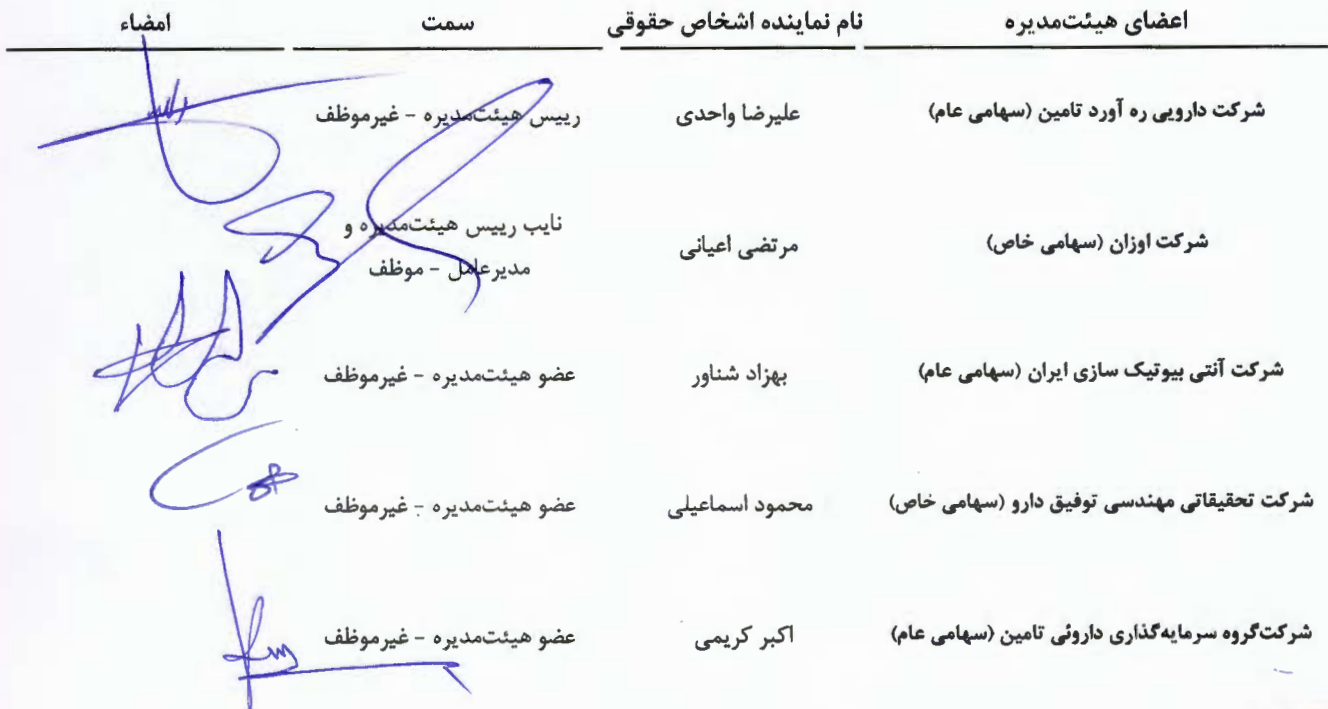 اعضای هیئت‌مدیره نام نماینده اشخاص حقوقی سمت امضاء
شرکت دارویی ره آورد تامین (سهامی عام) علیرضا واحدی رییس هیئت‌مدیره - غیرموظف
شرکت اوزان (سهامی خاص) مرتضی اعیانی نایب رییس هیئت‌مدیره و
مدیرعامل - موظف
شرکت آنتی بیوتیک سازی ایران (سهامی عام) بهزاد شناور عضو هیئت‌مدیره - غیرموظف
شرکت تحقیقاتی مهندسی توفیق دارو (سهامی خاص) محمود اسماعیلی عضو هیئت‌مدیره - غیرموظف
شرکت‌گروه سرمایه‌گذاری داروئی تامین (سهامی عام) اکبر کریمی عضو هیئت‌مدیره - غیرموظف